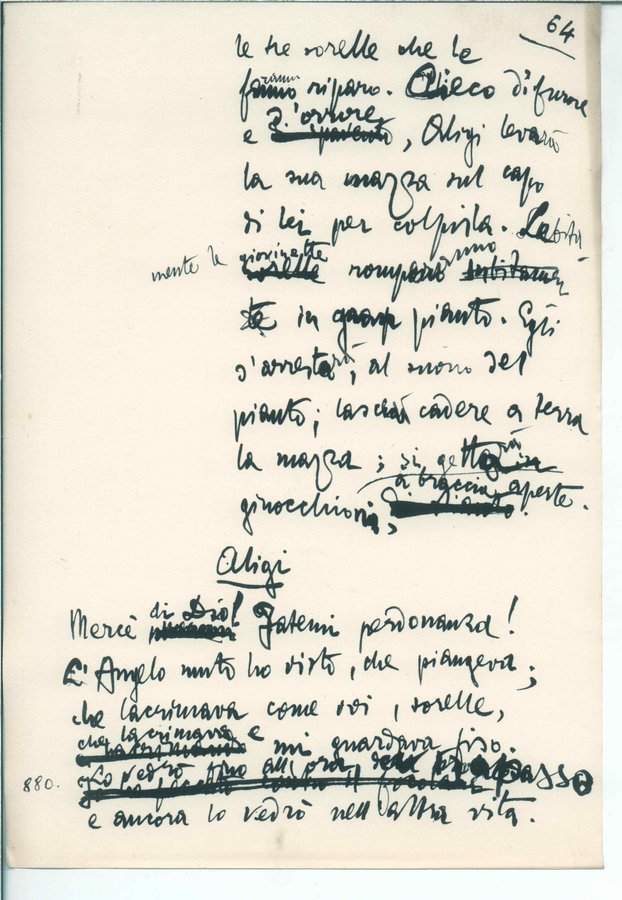 64
le tre sorelle che le
faranno riparo. Cieco di furore
e d'orrore, Aligi leverà
la sua mazza sul capo
di lei per colpirla. Subita
mente le giovinette romperanno
in pianto. Egli
s'arresterà, al suono del
pianto; lascerà cadere a terra
la mazza; si getterà in
ginocchioni, a braccia aperte.
Aligi
Mercè di Dio! Fatemi perdonanza!
L'Angelo muto ho visto, che piangeva;
che lacrimava come voi, sorelle,
che lacrimava e mi guardava fiso.
880. Lo vedrò fino all'ora del trapasso
e ancora lo vedrò nell'altra vita.